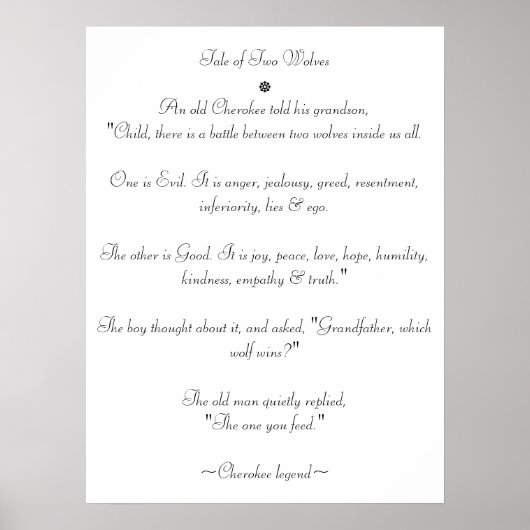 Tale of Two Wolves
An old Cherokee told his grandson,
"Child, there is a battle between two wolves inside us all.
One is Evil. It is anger, jealousy, greed, resentment,
inferiority, lies & ego.
The other is Good. It is joy, peace, love, hope, humility,
kindness, empathy & truth."
The boy thought about it, and asked, "Grandfather, which
wolf wins?"
The old man quietly replied,
"The one you feed."
~Cherokee legend~